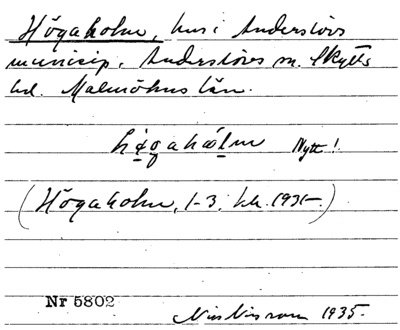 Högaholm, hus i Anderslövs
municip. Anderslövs sn. Skytts
hd. Malmöhus län.
Nytt!
(Högaholm, 1-3, kk. 1935)
Nr 5802
Nils Nilsson 1935.